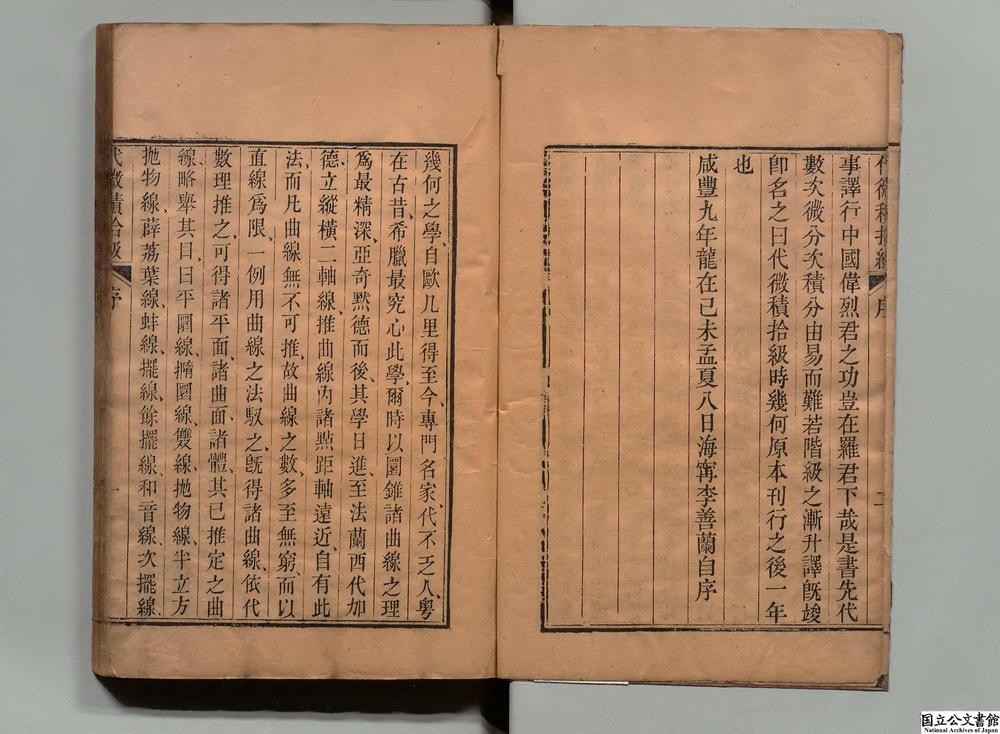 代微積拾級 序 二
事譯行中國偉烈君之功豈在羅君下哉是書先代
數次微分次積分由易而難若階級之漸升譯旣竣
卽名之曰代微積拾級時幾何原本刊行之後一年
也
咸豐九年龍在己未孟夏八日海甯李善蘭自序
幾何之學、自歐几里得至今、專門名家、代不乏人、粤
在古昔、希臘最究心此學、爾時以圜錐諸曲線之理
爲最精深、亞奇默德而後、其學日進、至法蘭西代加
德、立縱橫二軸線、推曲線內諸㸃距軸遠近、自有此
法、而凡曲線無不可推、故曲線之數、多至無窮、而以
直線爲限、一例用曲線之法馭之、旣得諸曲線、依代
數理推之、可得諸平面、諸曲面、諸體、其已推定之曲
線、略舉其目、曰平圜線、撱圜線、雙線、拋物線、半立方
拋物線、薜荔葉線、蚌線、擺線、餘擺線、和音線、次擺線、
代微積拾級 序 一
国立公文書館
National Archives of Japan